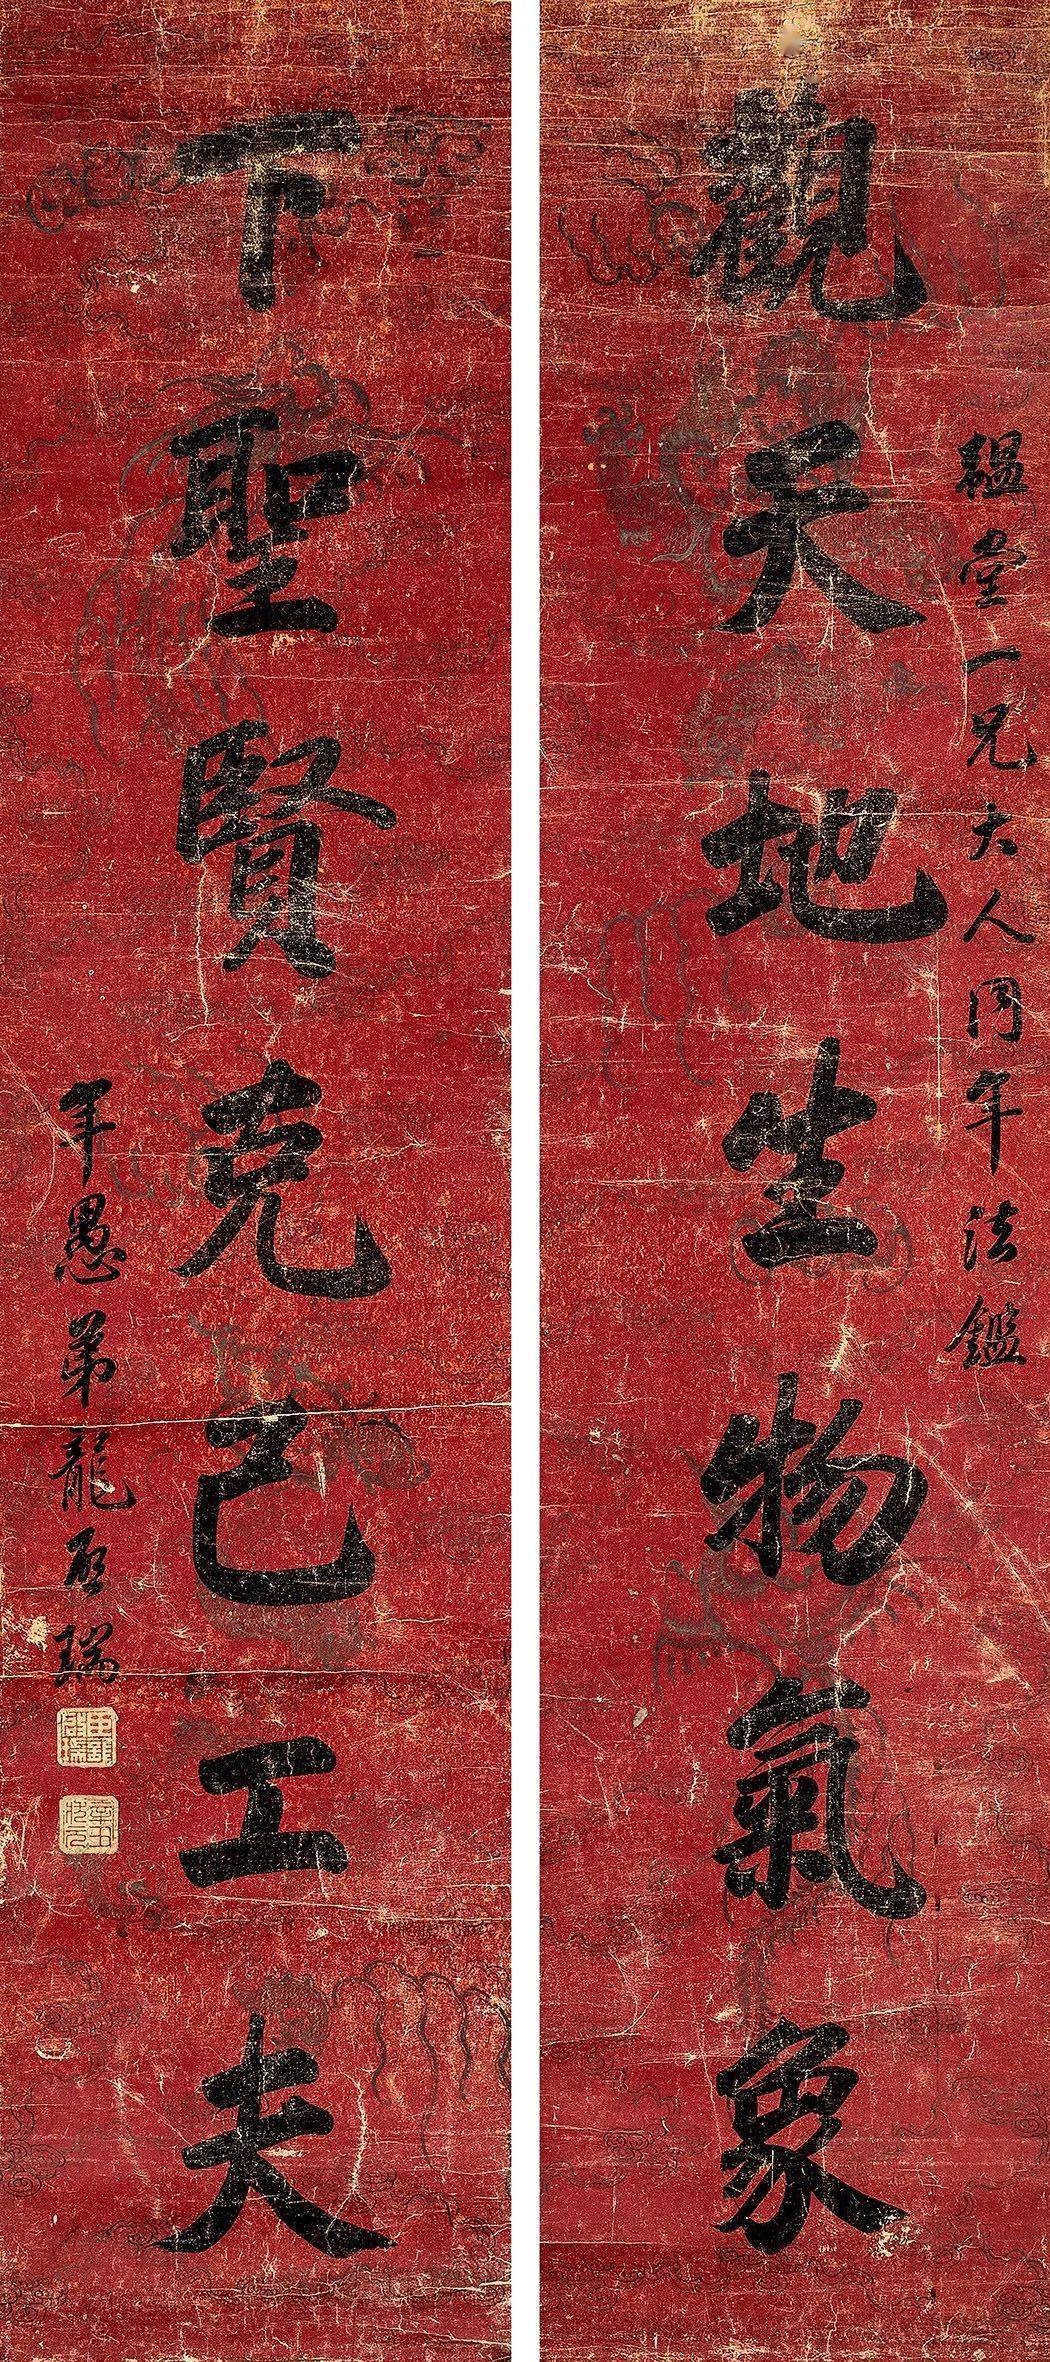 觀天地生物氣象
韞堂一兄大人同年法鑑
下聖賢克己工夫
年愚弟龍啟瑞